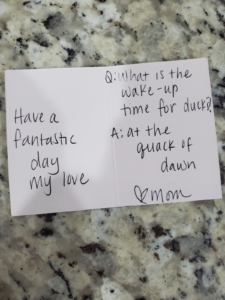 Have a
fantastic
day
my love
Q: What is the
wake-up
time for ducks?
A: at the
quack of
dawn
♡mom